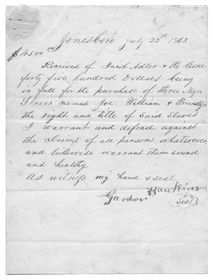 Jonesboro July 22d 1863
$4500
Received of Jacob Adler & He Cone
forty five hundred Dollars being
in full for the purchase of three Negro
Slaves named Joe William &
the right and title of said Slaves
I warrant and defend against
the claims of all persons whatsoever
and likewise warrant them sound
and healthy
As witness my hand & seal
Gardner Hawkins
Seal